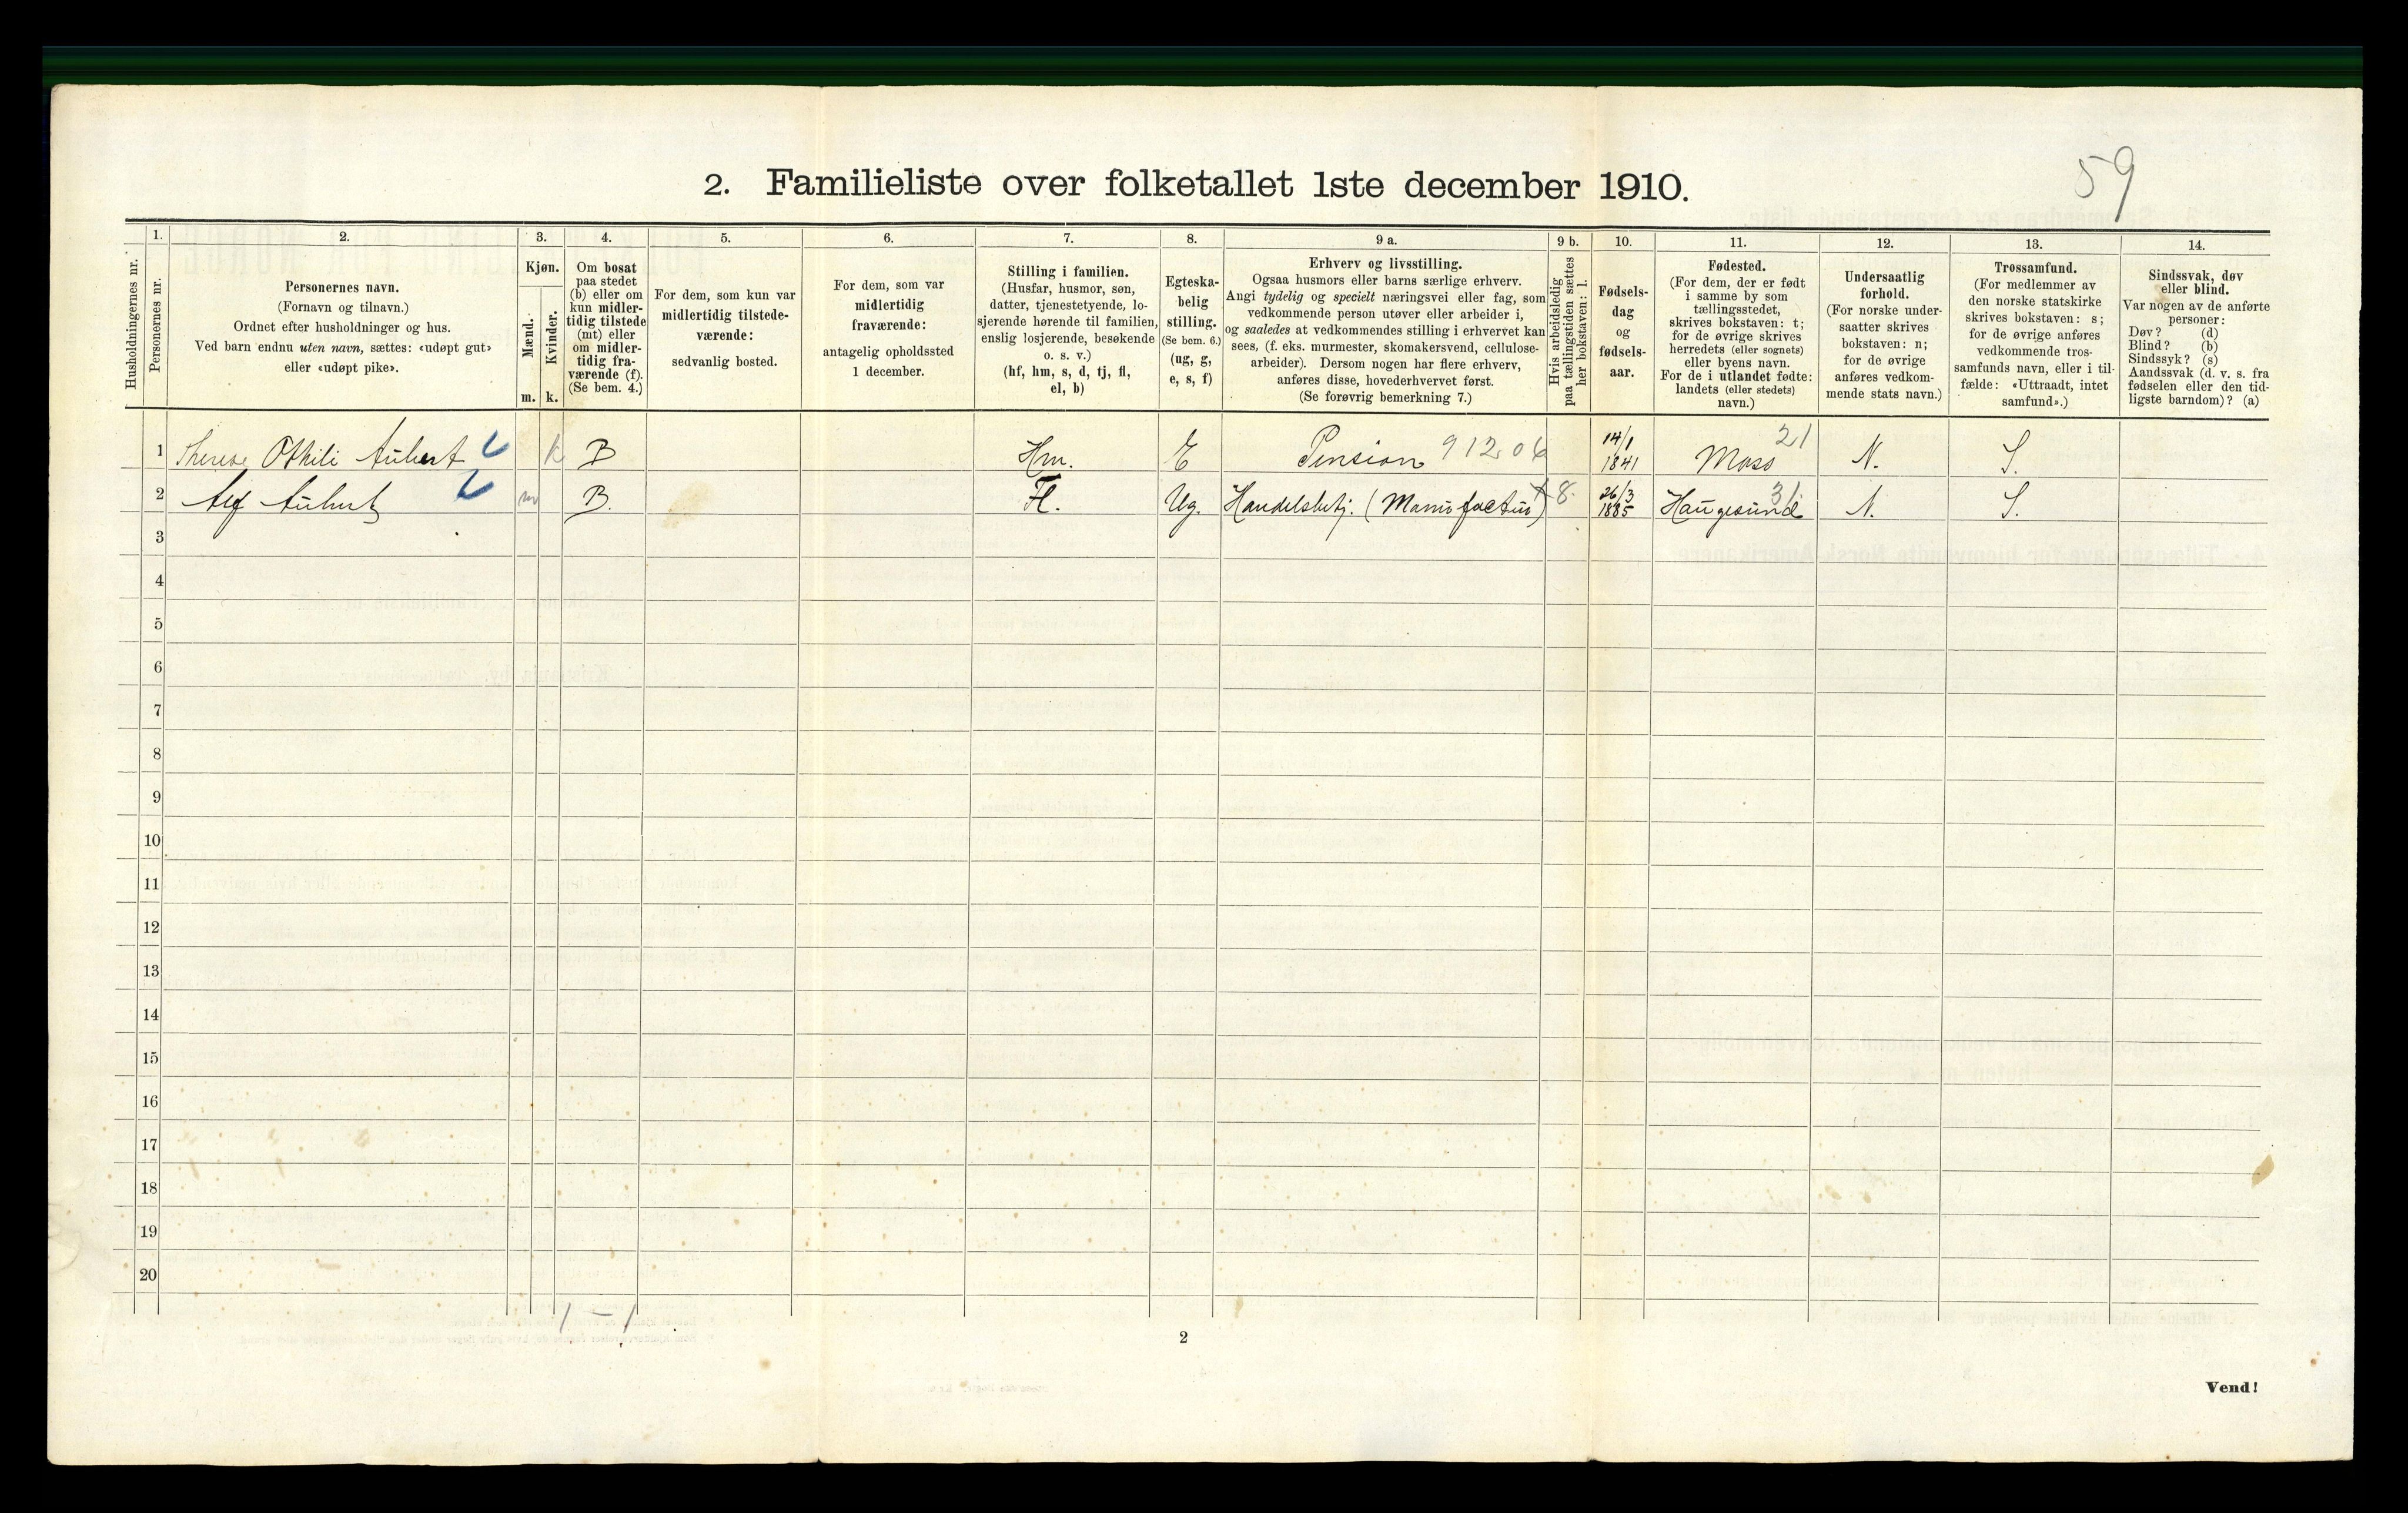 59
2. Familieliste over folketallet 1ste december 1910.
Husholdningernes nr.
1.
Personernes nr.
2.
Personernes navn.
(Fornavn og tilnavn.)
Ordnet efter husholdninger og hus.
Ved barn endnu uten navn, sættes: «udøpt gut»
eller «udøpt pike».
3.
Kjøn.
Mænd.
Kvinder.
m. k.
4.
Om bosat
paa stedet
(b) eller om
kun midler-
tidig tilstede
(mt) eller
om midler-
tidig fra-
værende (f).
(Se bem. 4.)
5.
For dem, som kun var
midlertidig tilstede-
værende:
sedvanlig bosted.
6.
For dem, som var
midlertidig
fraværende:
antagelig opholdssted
1 december.
7.
Stilling i familien.
(Husfar, husmor, søn,
datter, tjenestetyende, lo-
sjerende hørende til familien,
enslig losjerende, besøkende
o. s. v.)
(hf, hm, s, d, tj, fl,
el, b)
8.
Egteska-
belig
stilling.
(Se bem. 6.)
(ug, g,
e, s, f)
9 a.
Erhverv og livsstilling.
Ogsaa husmors eller barns særlige erhverv.
Angi tydelig og specielt næringsvei eller fag, som
vedkommende person utøver eller arbeider i,
og saaledes at vedkommendes stilling i erhvervet kan
sees, (f. eks. murmester, skomakersvend, cellulose-
arbeider). Dersom nogen har flere erhverv,
anføres disse, hovederhvervet først.
(Se forøvrig bemerkning 7.)
9 b.
Hvis arbeidsledig
paa tællingstiden sættes
her bokstaven: l.
10.
Fødsels-
dag
og
fødsels-
aar.
11.
Fødested.
(For dem, der er født
i samme by som
tællingsstedet,
skrives bokstaven: t;
for de øvrige skrives
herredets (eller sognets)
eller byens navn.
For de i utlandet fødte:
landets (eller stedets)
navn.)
12.
Undersaatlig
forhold.
(For norske under-
saatter skrives
bokstaven: n;
for de øvrige
anføres vedkom-
mende stats navn.)
13.
Trossamfund.
(For medlemmer av
den norske statskirke
skrives bokstaven: s;
for de øvrige anføres
vedkommende tros-
samfunds navn, eller i til-
fælde: «Uttraadt, intet
samfund».)
14.
Sindssvak, døv
eller blind.
Var nogen av de anførte
personer:
Døv? (d)
Blind? (b)
Sindssyk? (s)
Aandssvak (d. v. s. fra
fødselen eller den tid-
ligste barndom)? (a)
1 Therese Othili Aubert k B Hm. E Pension 91206 14/1 1841 Moss 21 N. S.
2 Alf Aubert m B. Fl. Ug. Handelsbetj. (Manufactur) 8. 26/3 1885 Haugesund 31 N. S.
3
4
5
6
7
8
9
10
11
12
13
14
15
16
17
18
19
20
1 – 1
2
Vend!